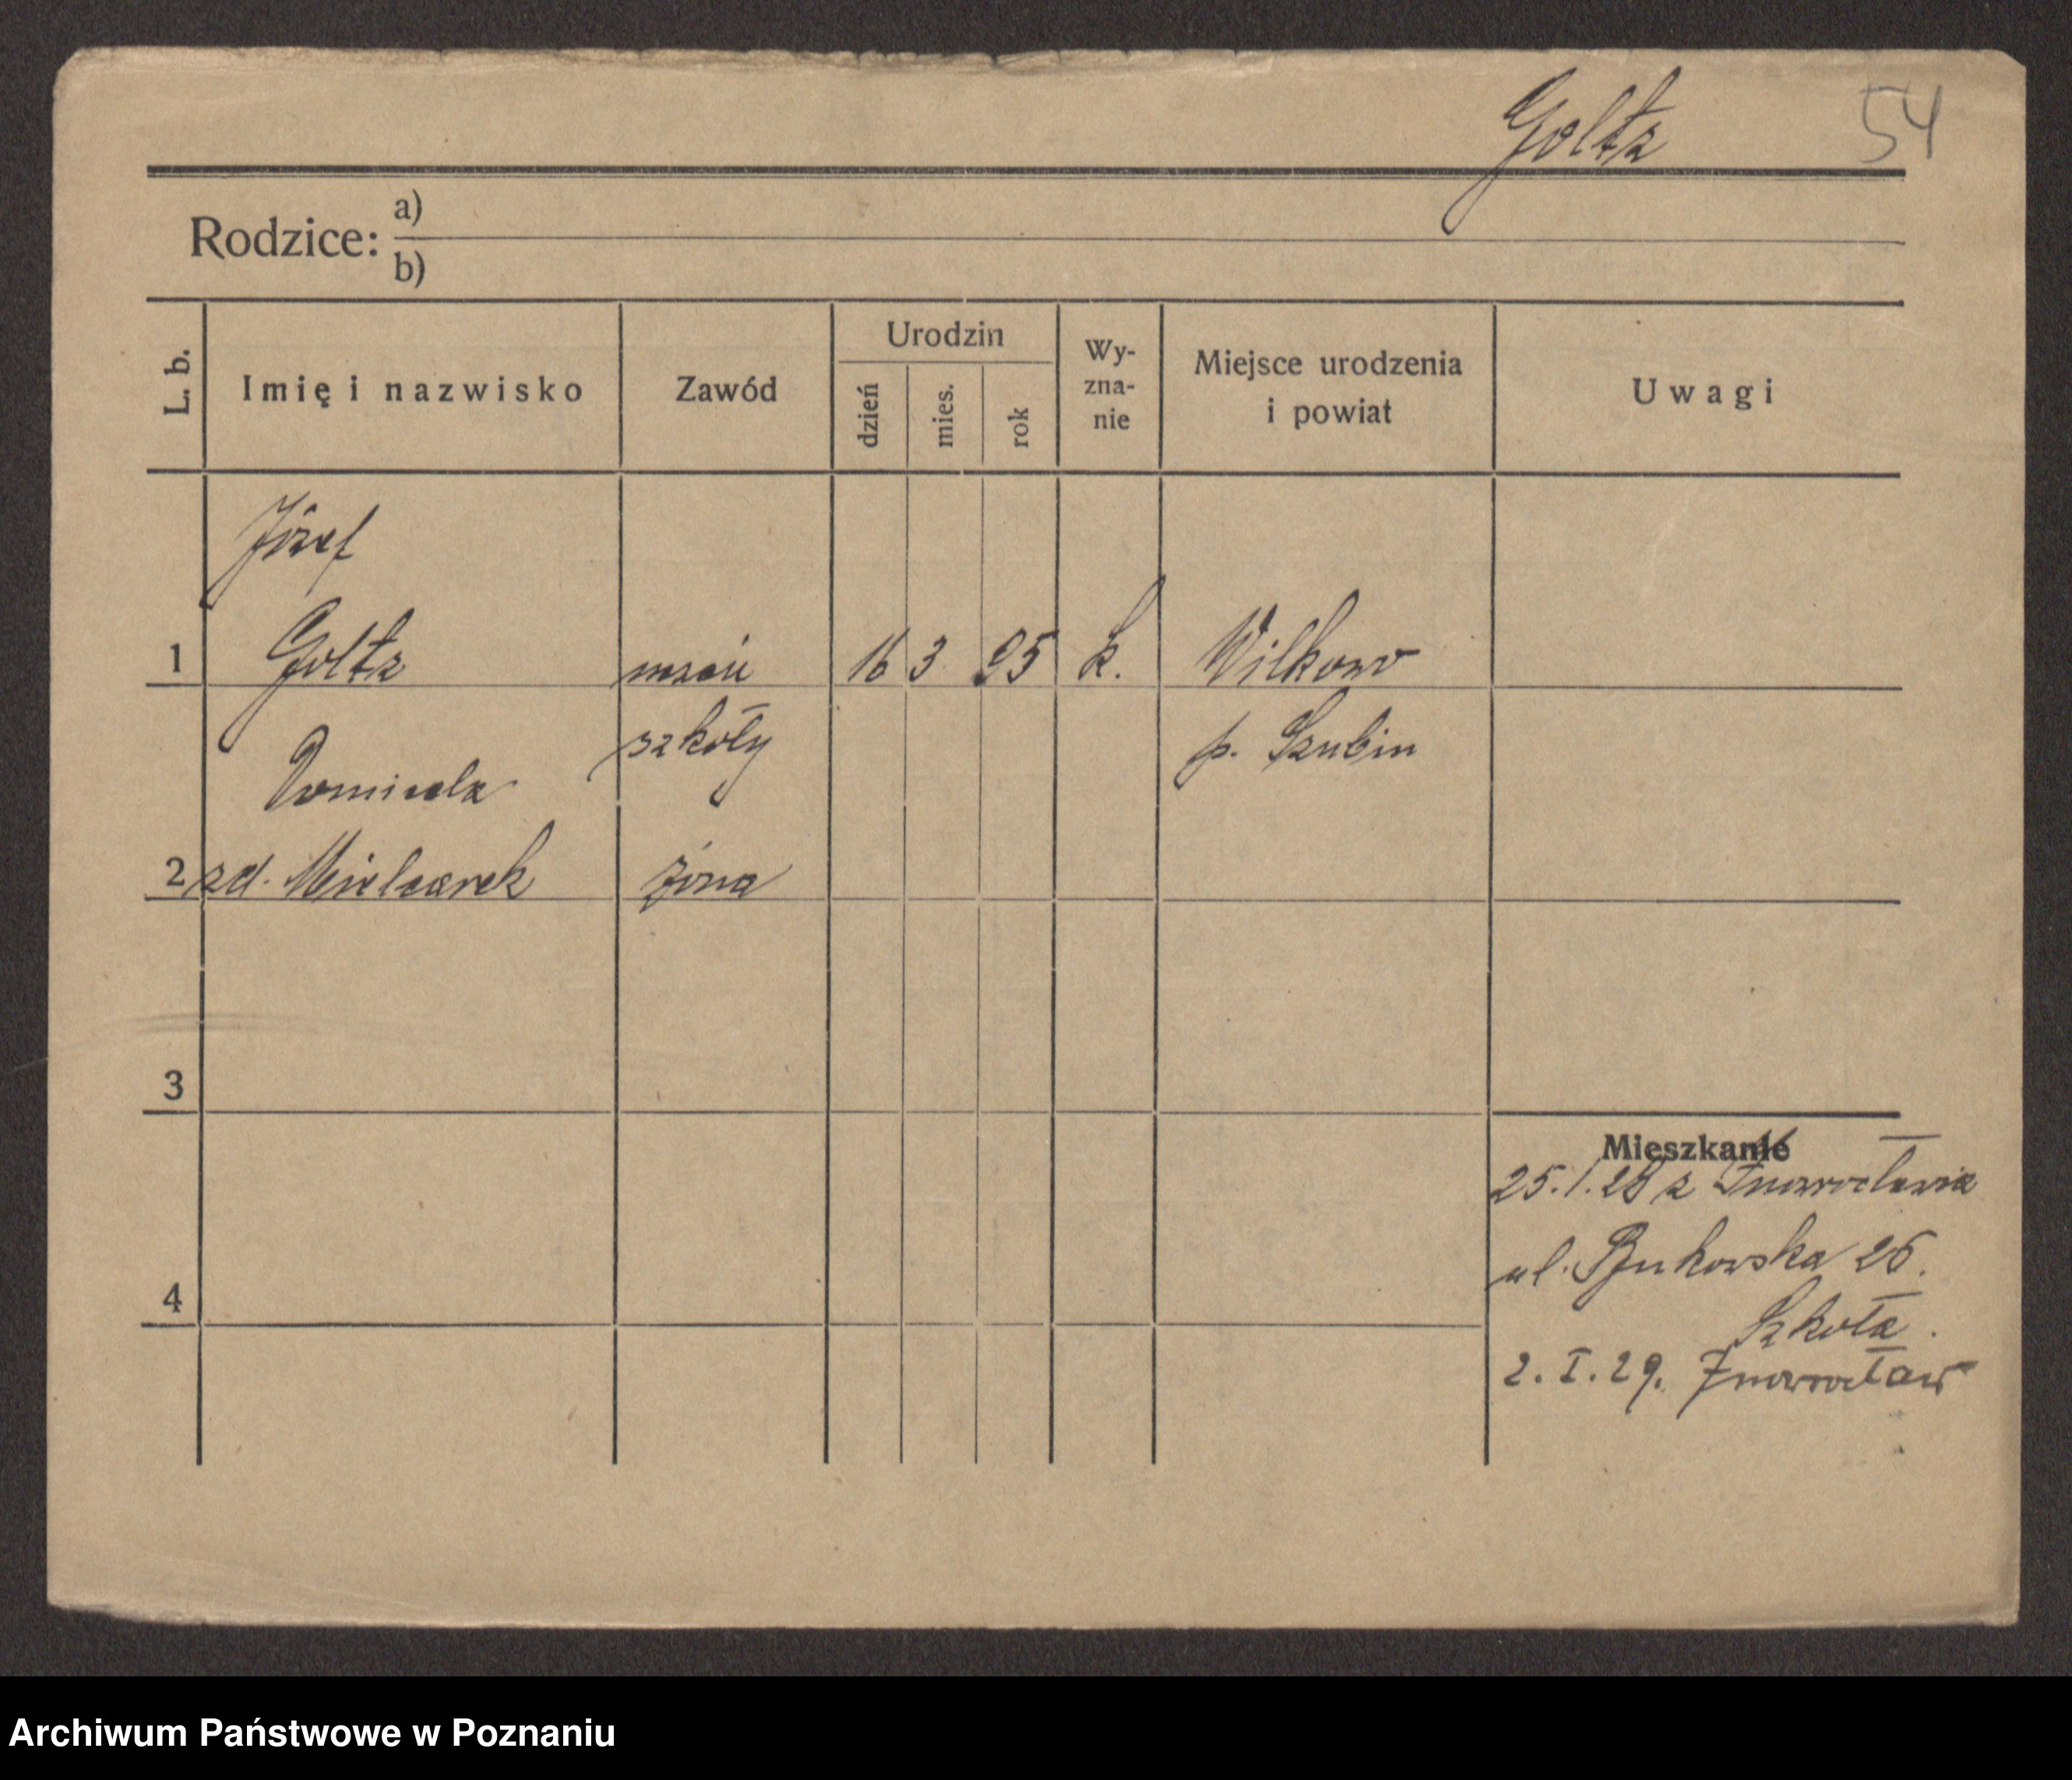 Goltz 54
Rodzice: a)
b)
L. b. Imię i nazwisko Zawód Urodzin dzień mies. rok Wy-zna-nie Miejsce urodzenia i powiat Uwagi
Józef
1 Goltz uczeń 16 3 05 k. Wilkowo
szkoły p. Szubin
2 zd. Mielcarek żona
3
Mieszkanie
25.1.28 z Inowrocławia
ul. Bukowska 26.
4
Szkoła.
2. I. 29. Inowrocław
Archiwum Państwowe w Poznaniu